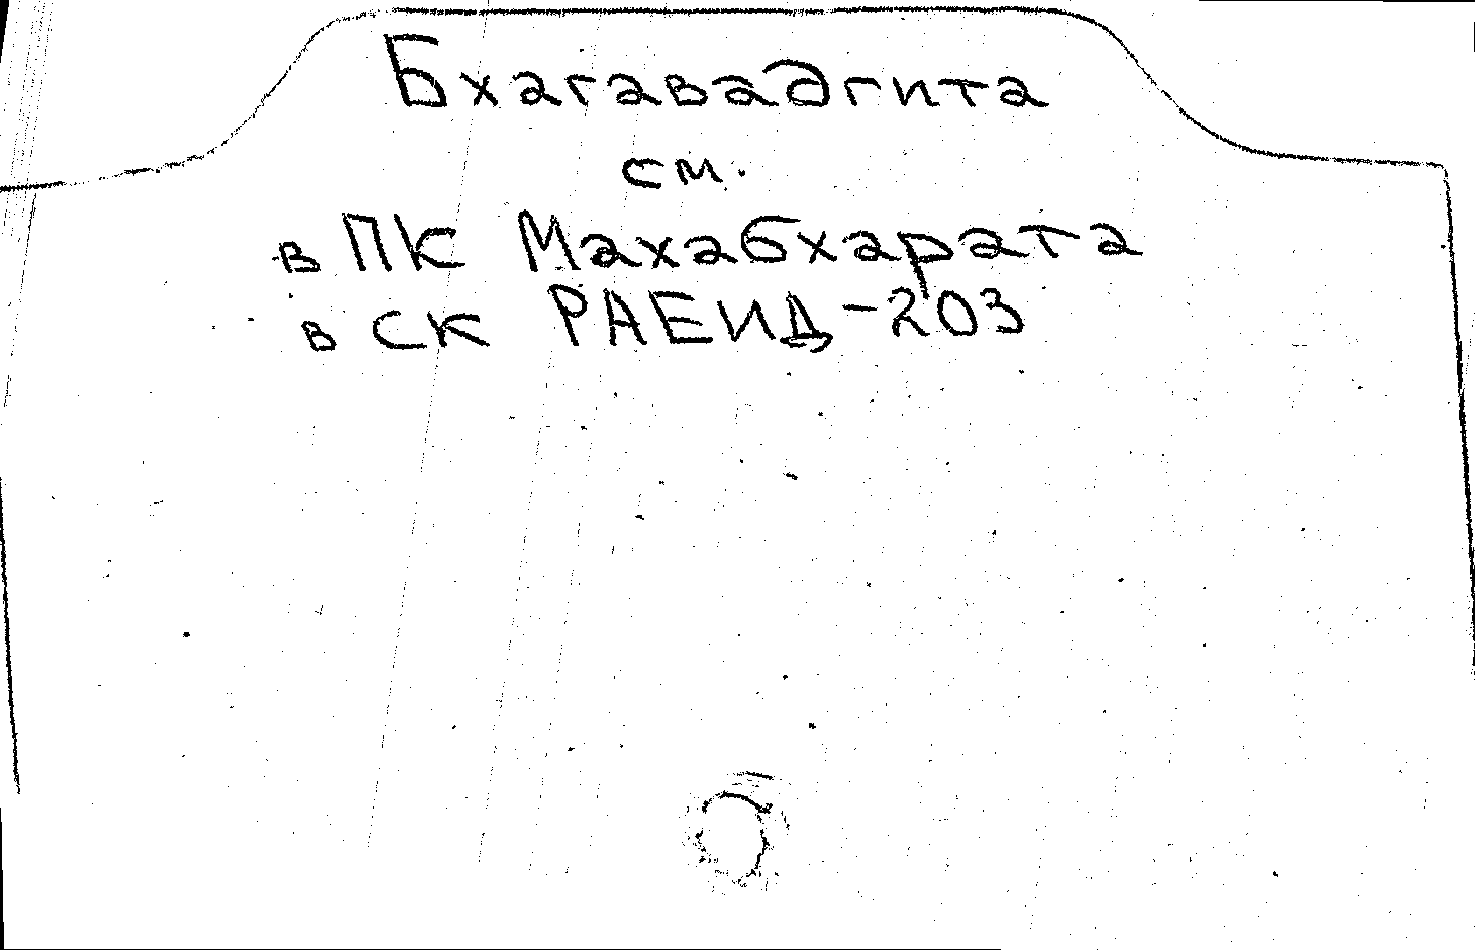 Бхагавадгита
см.
в ПК Махабхарата
в СК РАЕИД-203